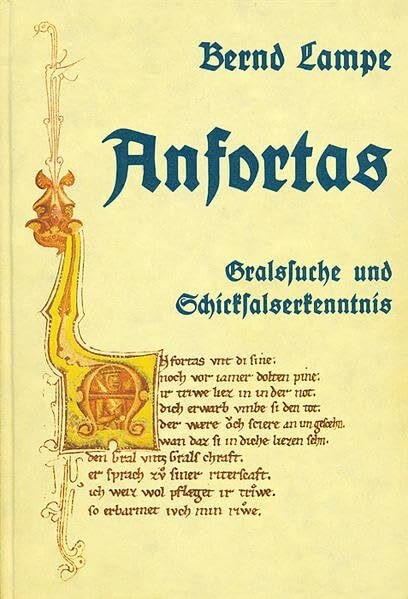 Bernd Lampe
Anfortas
Gralssuche und
Schicksalserkenntnis
Anfortas vnt di sine:
noch vor iamer dolten pine:
ir triwe liez in in der not:
dich erwarb vmbe si den tot:
der wære ôch sciere an un geschehn.
wan daz si in diche liezen sehn.
den Gral vntz Grals chraft.
er sprach zů siner riterscaft.
ich weiz wol pflæget ir trůwe.
so erbarmet ivch min růwe.